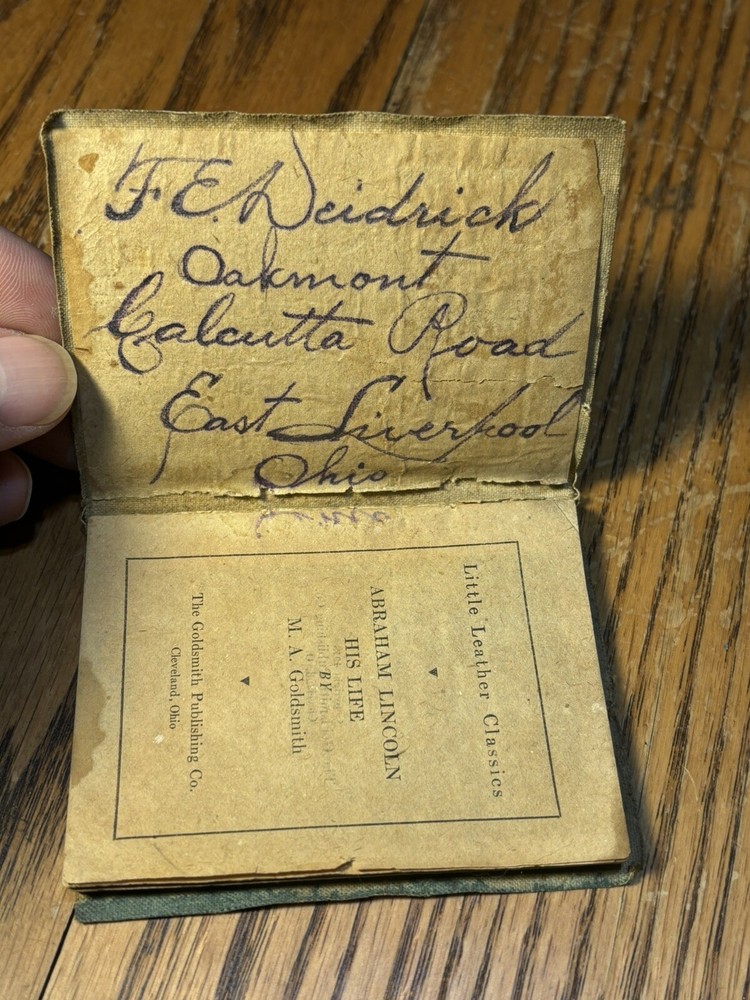 F. E. Deidrick
Oakmont
Calcutta Road
East Liverpool
Ohio
Little Leather Classics
ABRAHAM LINCOLN
HIS LIFE
BY
M. A. Goldsmith
The Goldsmith Publishing Co.
Cleveland, Ohio